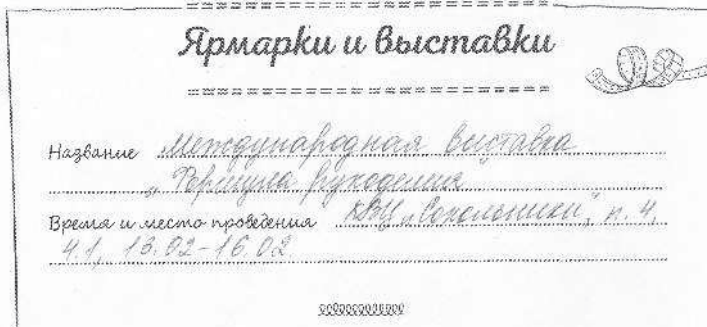 Ярмарки и выставки
Название Международная выставка
„Формула рукоделия
Время и место проведения КВЦ „Сокольники", п. 4,
4.1, 13.02-16.02